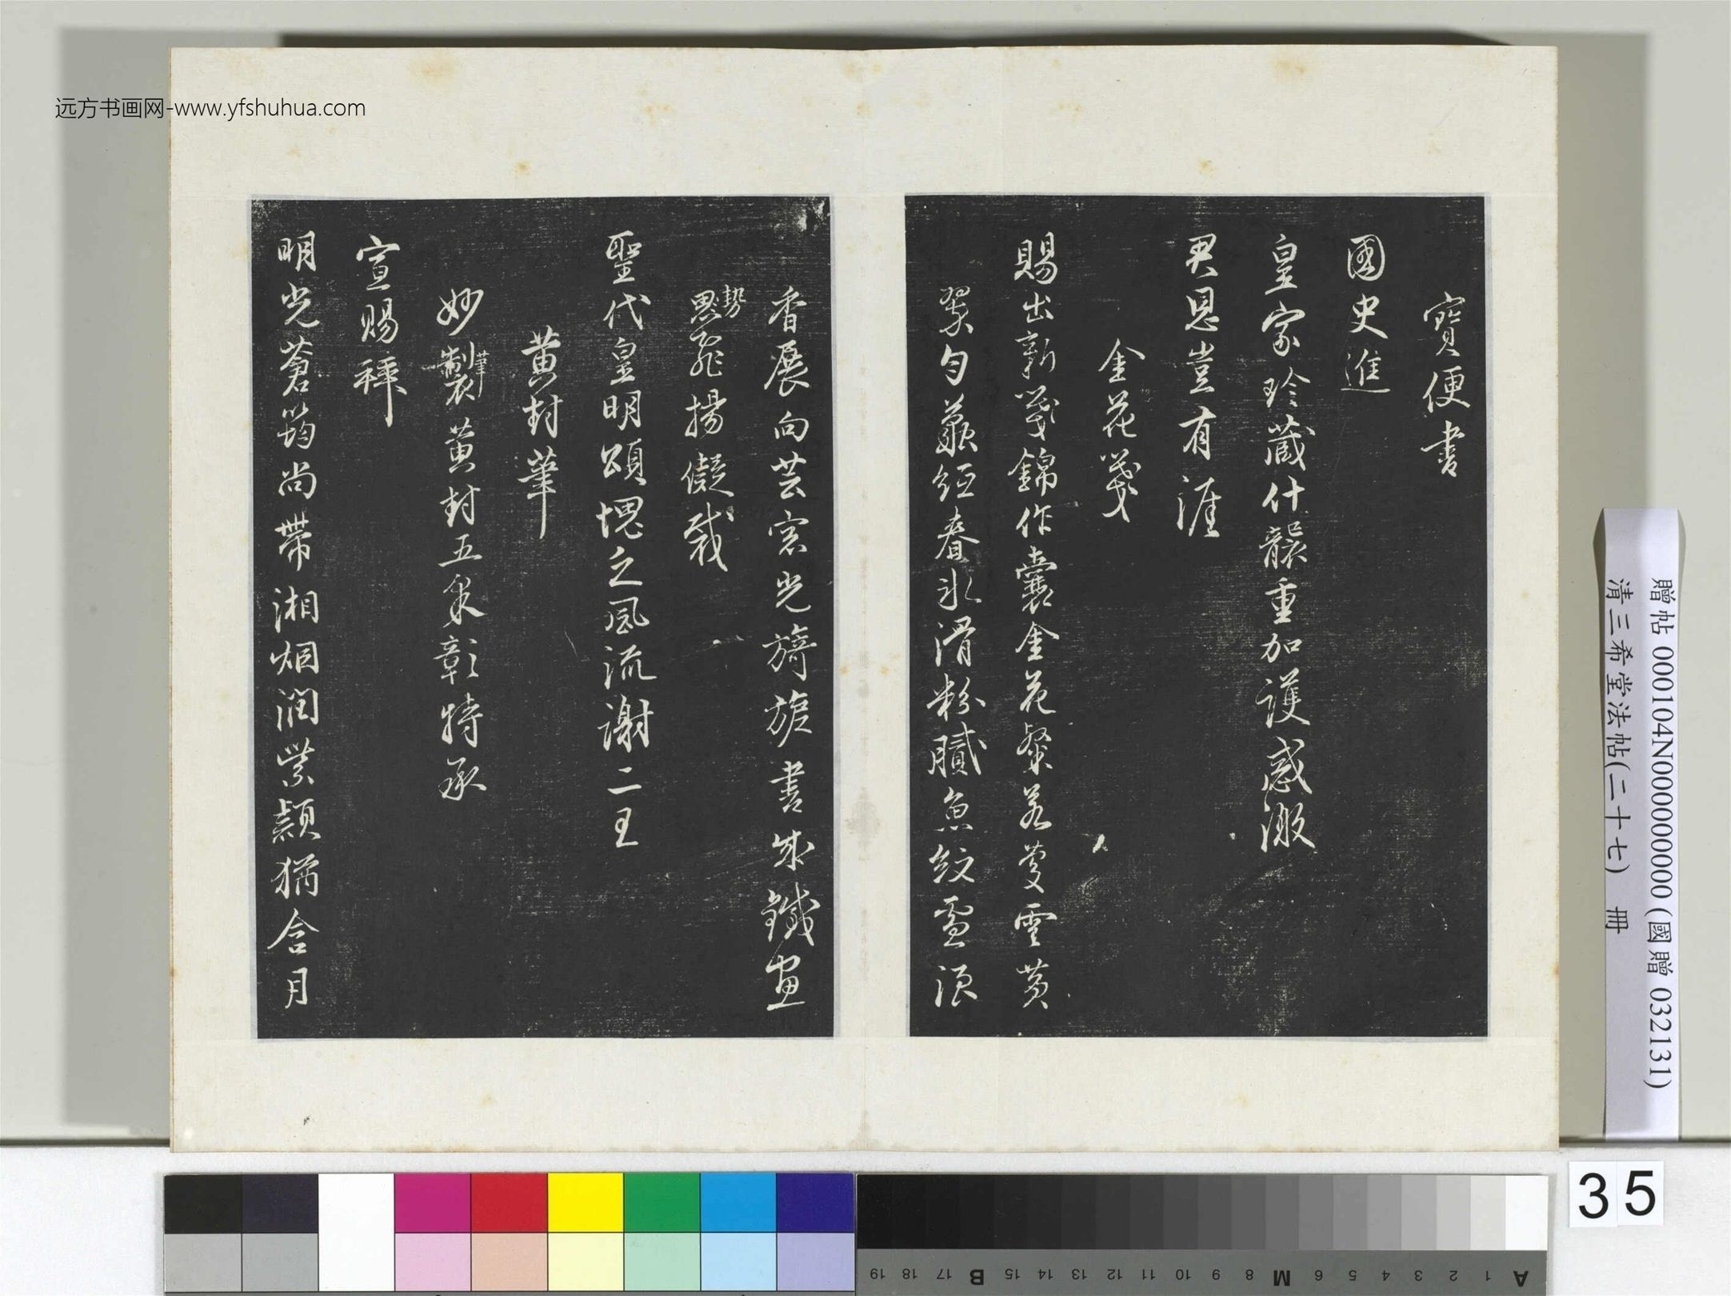 寶便書
國史進
皇家珍藏什襲重加護感激
君恩豈有涯
金花箋
賜出新箋錦作囊金花粲若蔓雲黃
翠勻蘇經春冰滑粉膩魚紋雪浪
香展向芸窗光旖旎書成鐵畫
勢
飛揚儗裁
聖代皇明頌愧之風流謝二王
黃封筆
筆
妙製黃封五采彰特承
宣賜拜
明光蒼筠尚帶湘烟潤紫穎猶含月
远方书画网-www.yfshuhua.com
贈帖 000104N000000000 (國贈 032131)
清三希堂法帖(二十七) 冊
35
19 18 17 B 15 14 13 12 11 10 9 8 M 6 5 4 3 2 1 A